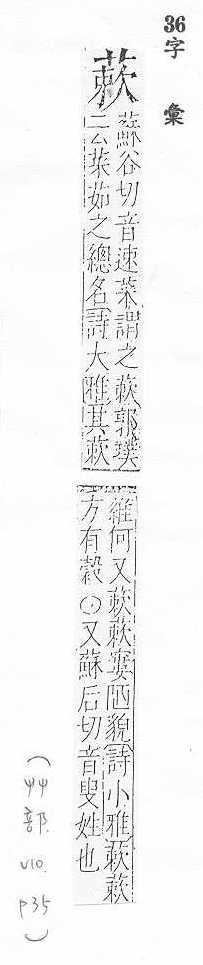 36字彙
蔌
蘇谷切音速菜謂之蔌郭璞
云菜茹之總名詩大雅其蔌
維何又蔌蔌窶陋貌詩小雅蔌蔌
方有穀○又蘇后切音叟姓也
(艸部. V10. P35)